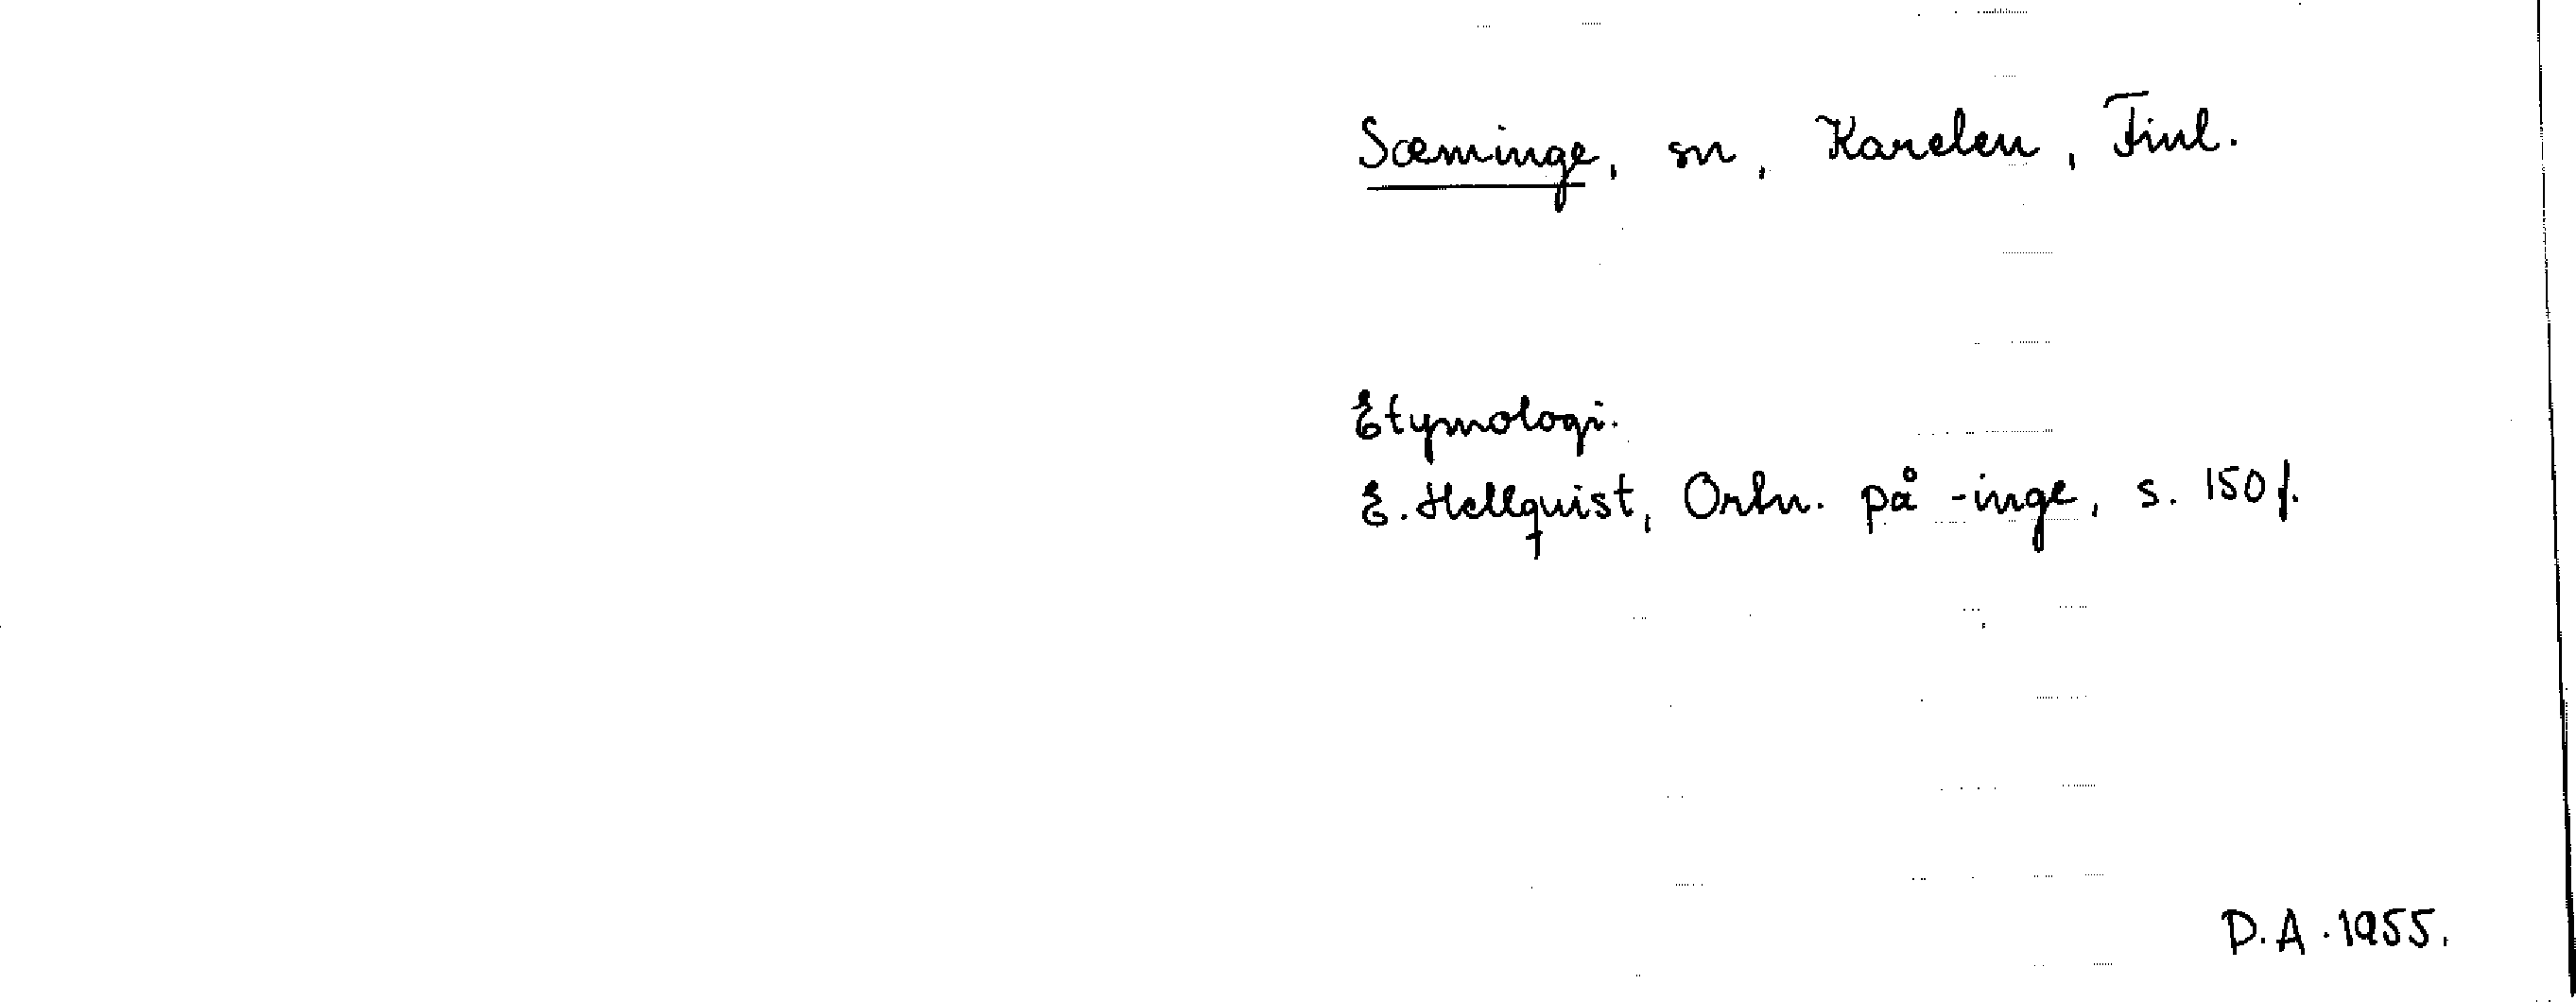 Sæminge, sn, Karelen, Finl.
Etymologi.
E. Hellquist, Ortn. på -inge, s. 150 f.
D.A. 1955.